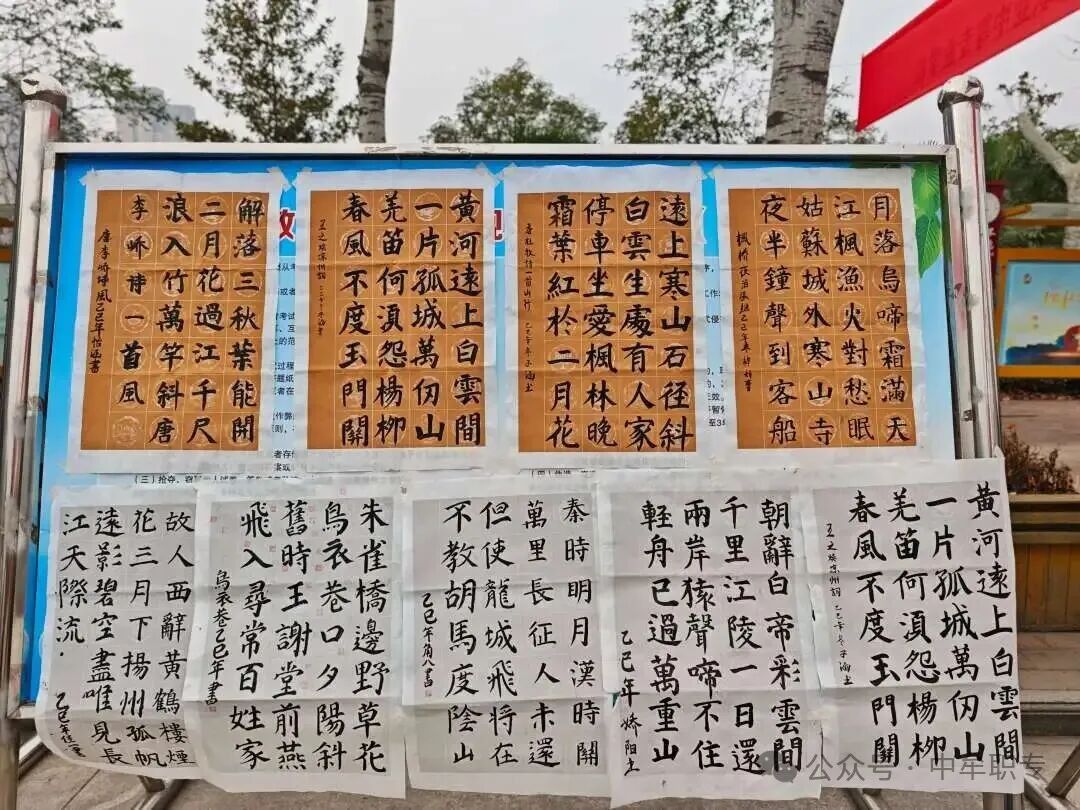 解落三秋葉能開
二月花過江千尺
浪入竹萬竿斜唐
李峤詩一首風
唐李峤詩風乙巳年怡涵書
黄河遠上白雲間
一片孤城萬仞山
羌笛何須怨楊柳
春風不度玉門關
王之渙涼州詞 乙巳年冬子涵書
遠上寒山石径斜
白雲生處有人家
停車坐愛楓林晚
霜葉紅於二月花
唐杜牧詩一首山行 乙巳年冬子涵书
月落烏啼霜滿天
江楓漁火對愁眠
姑蘇城外寒山寺
夜半鐘聲到客船
故人西辭黄鶴樓煙
花三月下揚州孤帆
遠影碧空盡唯見長
江天際流
朱雀橋邊野草花
烏衣巷口夕陽斜
舊時王謝堂前燕
飛入尋常百姓家
烏衣巷乙巳年書
秦時明月漢時關
萬里長征人未還
但使龍城飛將在
不教胡馬度陰山
乙巳年角八書
朝辭白帝彩雲間
千里江陵一日還
兩岸猿聲啼不住
輕舟已過萬重山
乙巳年嬌阳书
黄河遠上白雲間
一片孤城萬仞山
羌笛何須怨楊柳
春風不度玉門關
王之渙涼州詞 乙巳年冬子涵书
公众号·中牟职专